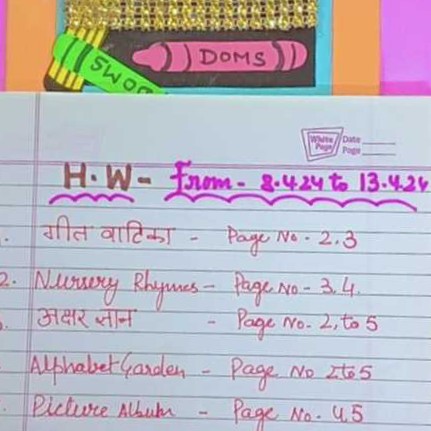 DOMS
DOMS
White Page
Date
Page
H.W- From - 8.4.24 to 13.4.24
गीत वाटिका - Page No. 2,3
2. Nursery Rhymes - Page No - 3,4.
अक्षर ज्ञान - Page No. 2, to 5
Alphabet Garden - Page No 2 to 5
Picture Album - Page No. 4,5